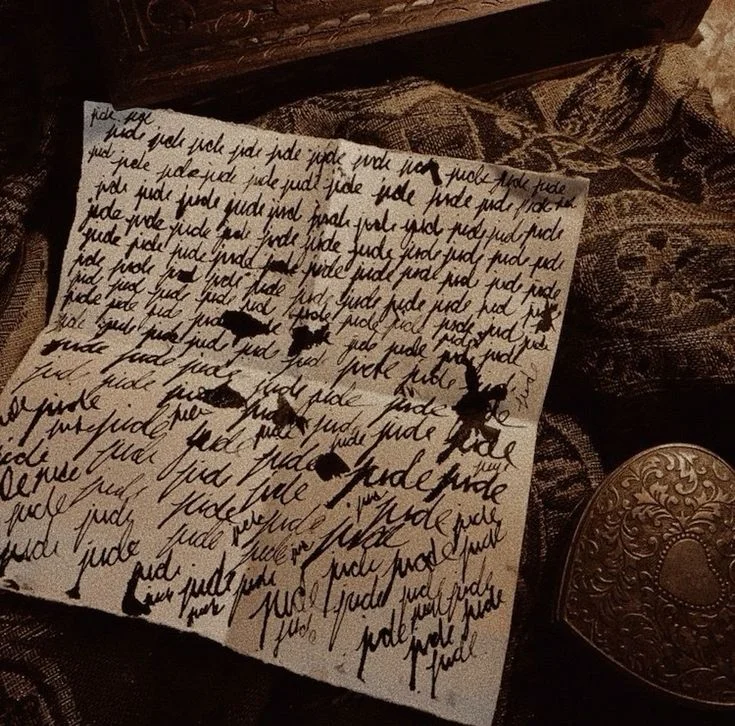 jude jude
jude jude jude jude jude jude jude jude jude jude jude
jude jude jude jude jude jude jude jude jude jude jude jude
jude jude jude jude jude jude jude jude jude jude jude
jude jude jude jude jude jude jude jude jude jude jude
jude jude jude jude jude jude jude jude jude jude jude
jude jude jude jude jude jude jude jude jude jude jude
jude jude jude jude jude jude jude jude jude jude
jude jude jude jude jude jude jude jude jude jude
jude jude jude jude jude jude jude jude jude
jude jude jude jude jude jude jude
jude jude jude jude jude jude jude
jude jude jude jude jude jude
jude jude jude jude jude jude
jude jude jude jude jude jude
jude jude jude jude jude jude
jude jude jude jude jude jude
jude jude jude jude jude jude
jude jude jude jude jude
jude jude jude jude jude
jude jude jude
jude